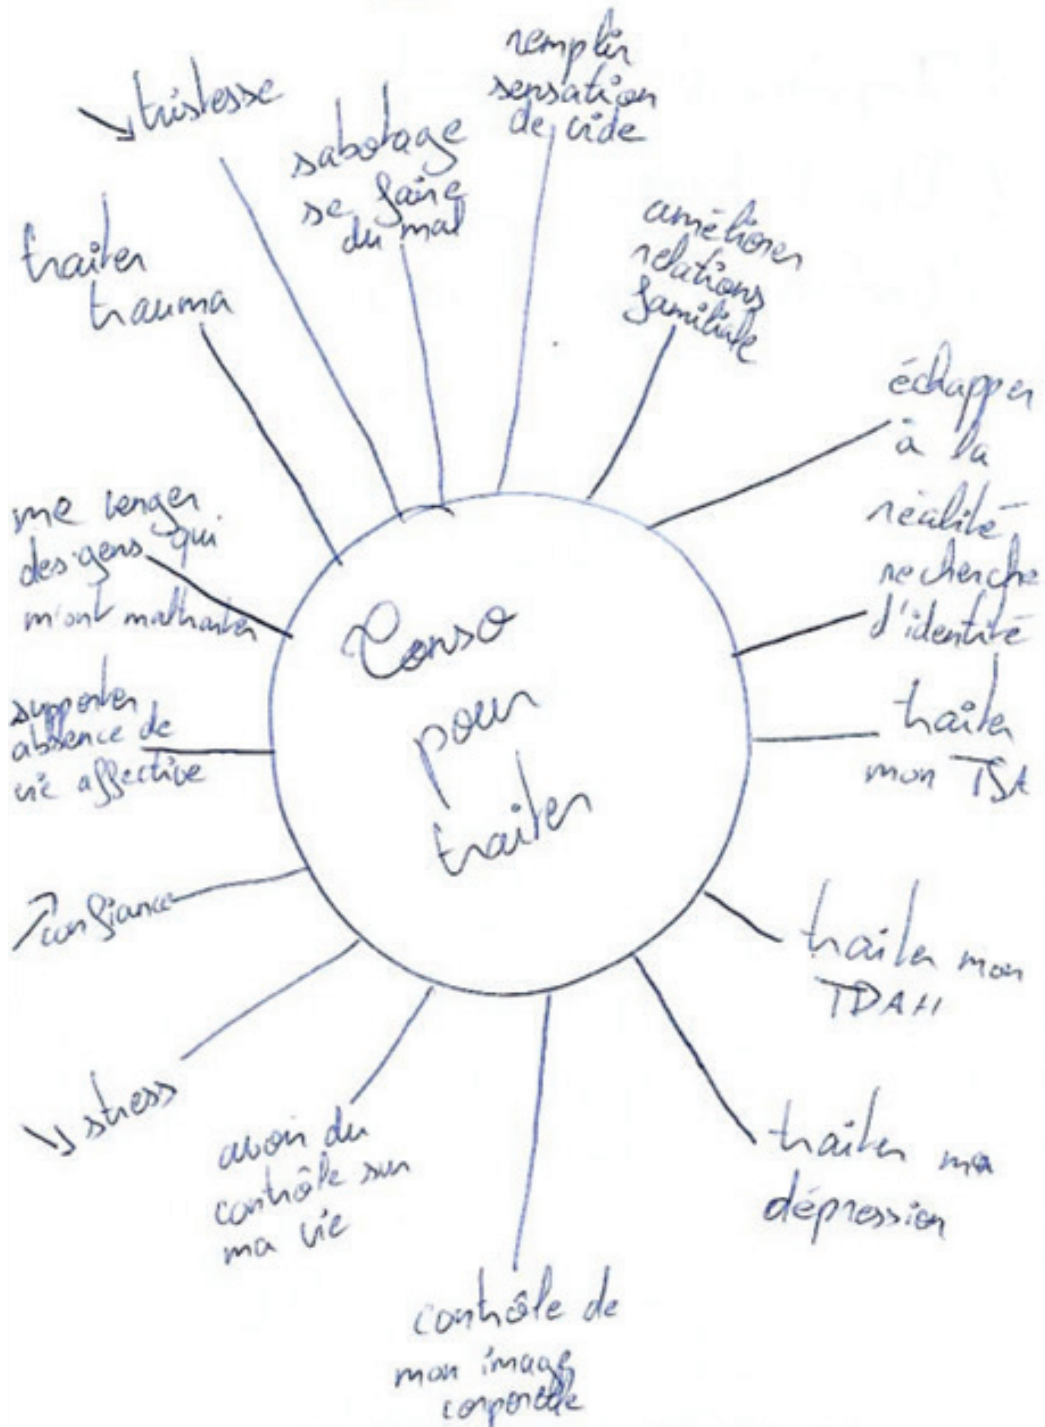 Conso
pour
traiter
remplir
sensation
de vide
améliorer
relations
familiale
échapper
à la
réalité
recherche
d'identité
traiter
mon TSA
traiter mon
TDAH
traiter ma
dépression
contrôle de
mon image
corporelle
avoir du
contrôle sur
ma vie
↘ stress
↗ confiance
supporter
absence de
vie affective
me venger
des gens qui
m'ont maltraiter
traiter
trauma
↘ tristesse
sabotage
se faire
du mal